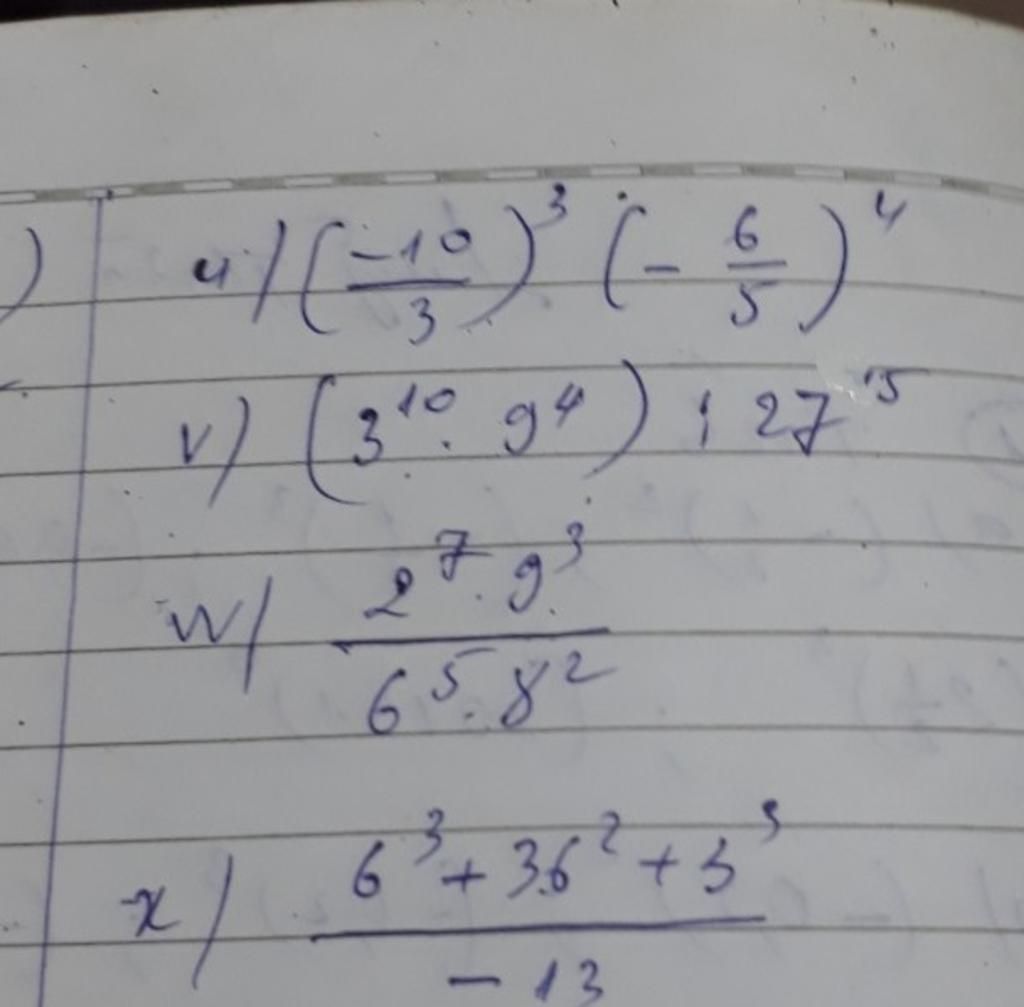 u) (-10/3)^3 . (- 6/5)^4
v) (3^10 . 9^4) : 27^5
w) (2^7 . 9^3)/(6^5 . 8^2)
x) (6^3 + 3.6^2 + 3^3)/(-13)